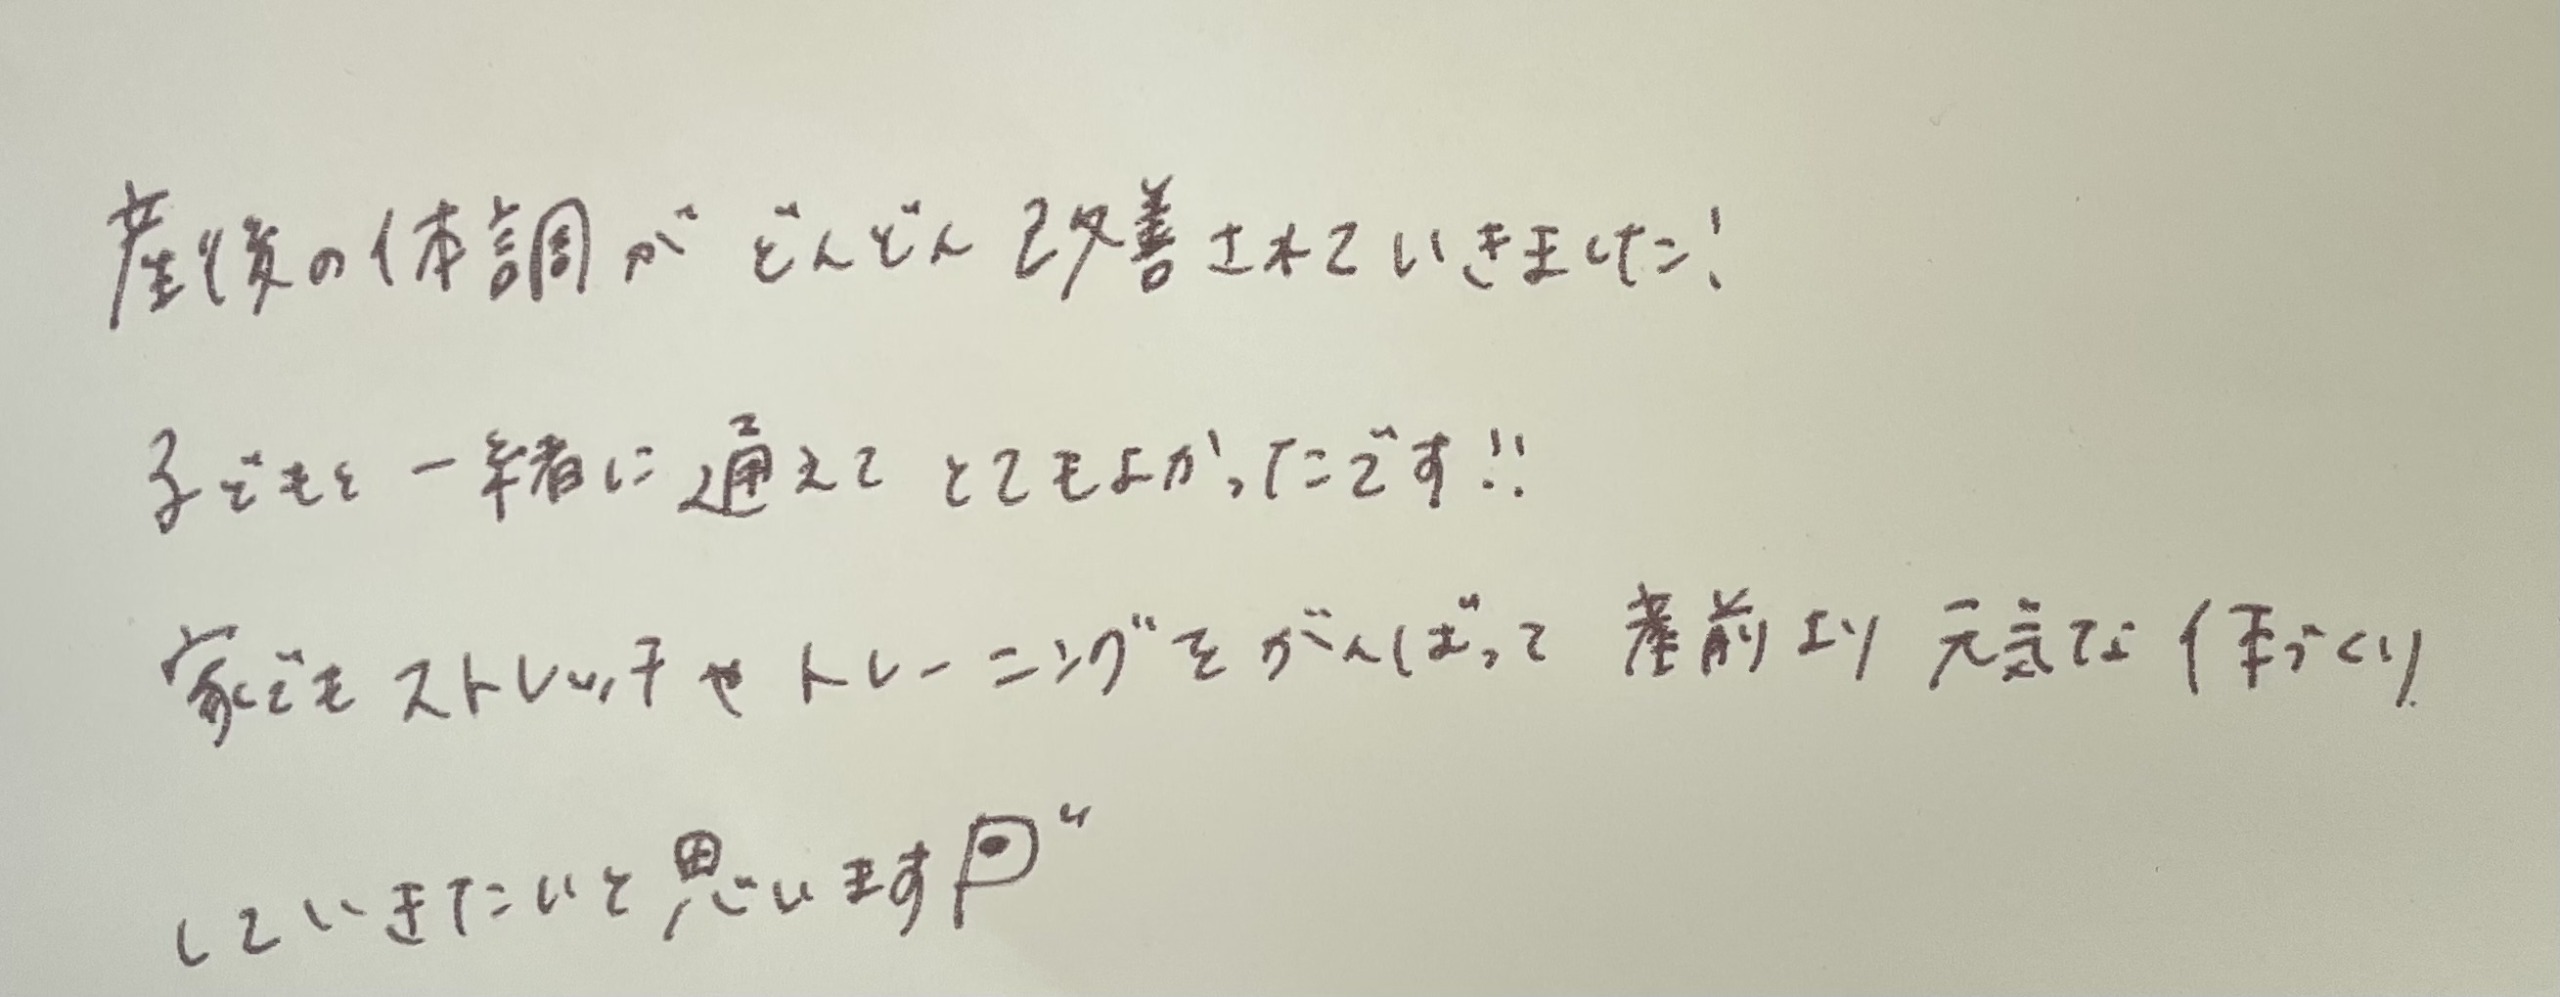 産後の体調がどんどん改善されていきました!
子どもと一緒に通えてとてもよかったです!!
家でもストレッチやトレーニングをがんばって産前より元気な体づくり
していきたいと思います